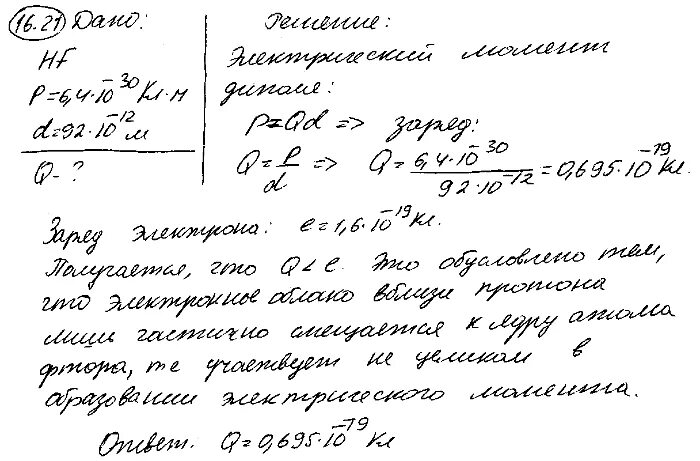 16.21 Дано:
HF
P=6,4·10⁻³⁰ Кл·м
d=92·10⁻¹² м
Q-?
Решение:
Электрический момент
диполя:
P=Qd => заряд:
Q=P/d => Q=6,4·10⁻³⁰/92·10⁻¹²=0,695·10⁻¹⁹ Кл.
Заряд электрона: e=1,6·10⁻¹⁹ Кл.
Получается, что Q<e. Это обусловлено тем,
что электронное облако вблизи протона
лишь частично смещается к ядру атома
фтора, те участвует не целиком в
образовании электрического момента.
Ответ. Q=0,695·10⁻¹⁹ Кл